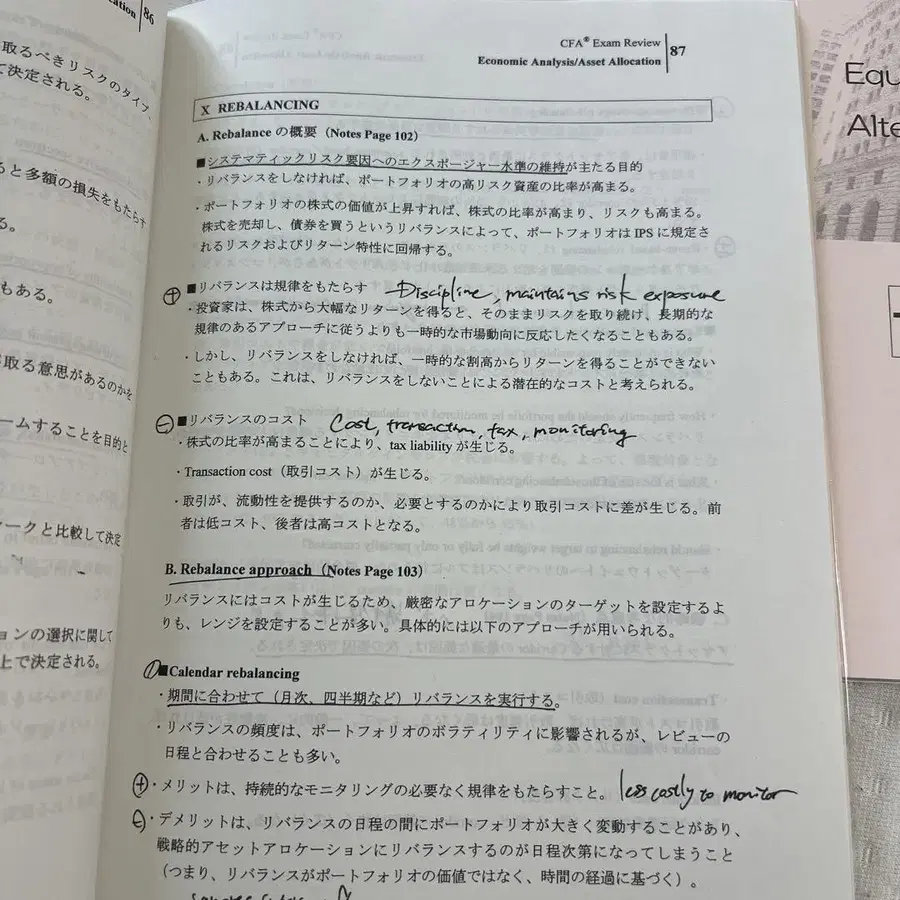 ation 86
取るべきリスクのタイプ、
て決定される。
ると多額の損失をもたらす
る。
もある。
取る意思があるのかを
ームすることを目的と
ークと比較して決定
ションの選択に関して
上で決定される。
CFA® Exam Review
Economic Analysis/Asset Allocation 87
X REBALANCING
A. Rebalance の概要（Notes Page 102）
■システマティックリスク要因へのエクスポージャー水準の維持が主たる目的
・リバランスをしなければ、ポートフォリオの高リスク資産の比率が高まる。
・ポートフォリオの株式の価値が上昇すれば、株式の比率が高まり、リスクも高まる。
株式を売却し、債券を買うというリバランスによって、ポートフォリオは IPS に規定さ
れるリスクおよびリターン特性に回帰する。
⊕ ■リバランスは規律をもたらす Discipline, maintains risk exposure
・投資家は、株式から大幅なリターンを得ると、そのままリスクを取り続け、長期的な
規律のあるアプローチに従うよりも一時的な市場動向に反応したくなることもある。
・しかし、リバランスをしなければ、一時的な割高からリターンを得ることができない
こともある。これは、リバランスをしないことによる潜在的なコストと考えられる。
⊖ ■リバランスのコスト Cost, transaction, tax, monitoring
・株式の比率が高まることにより、tax liability が生じる。
・Transaction cost（取引コスト）が生じる。
・取引が、流動性を提供するのか、必要とするのかにより取引コストに差が生じる。前
者は低コスト、後者は高コストとなる。
B. Rebalance approach（Notes Page 103）
リバランスにはコストが生じるため、厳密なアロケーションのターゲットを設定するよ
りも、レンジを設定することが多い。具体的には以下のアプローチが用いられる。
① ■Calendar rebalancing
・期間に合わせて（月次、四半期など）リバランスを実行する。
・リバランスの頻度は、ポートフォリオのボラティリティに影響されるが、レビューの
日程と合わせることも多い。
⊕・メリットは、持続的なモニタリングの必要なく規律をもたらすこと。 less costly to monitor
⊖・デメリットは、リバランスの日程の間にポートフォリオが大きく変動することがあり、
戦略的アセットアロケーションにリバランスするのが日程次第になってしまうこと
（つまり、リバランスがポートフォリオの価値ではなく、時間の経過に基づく）。
Equ
Alte